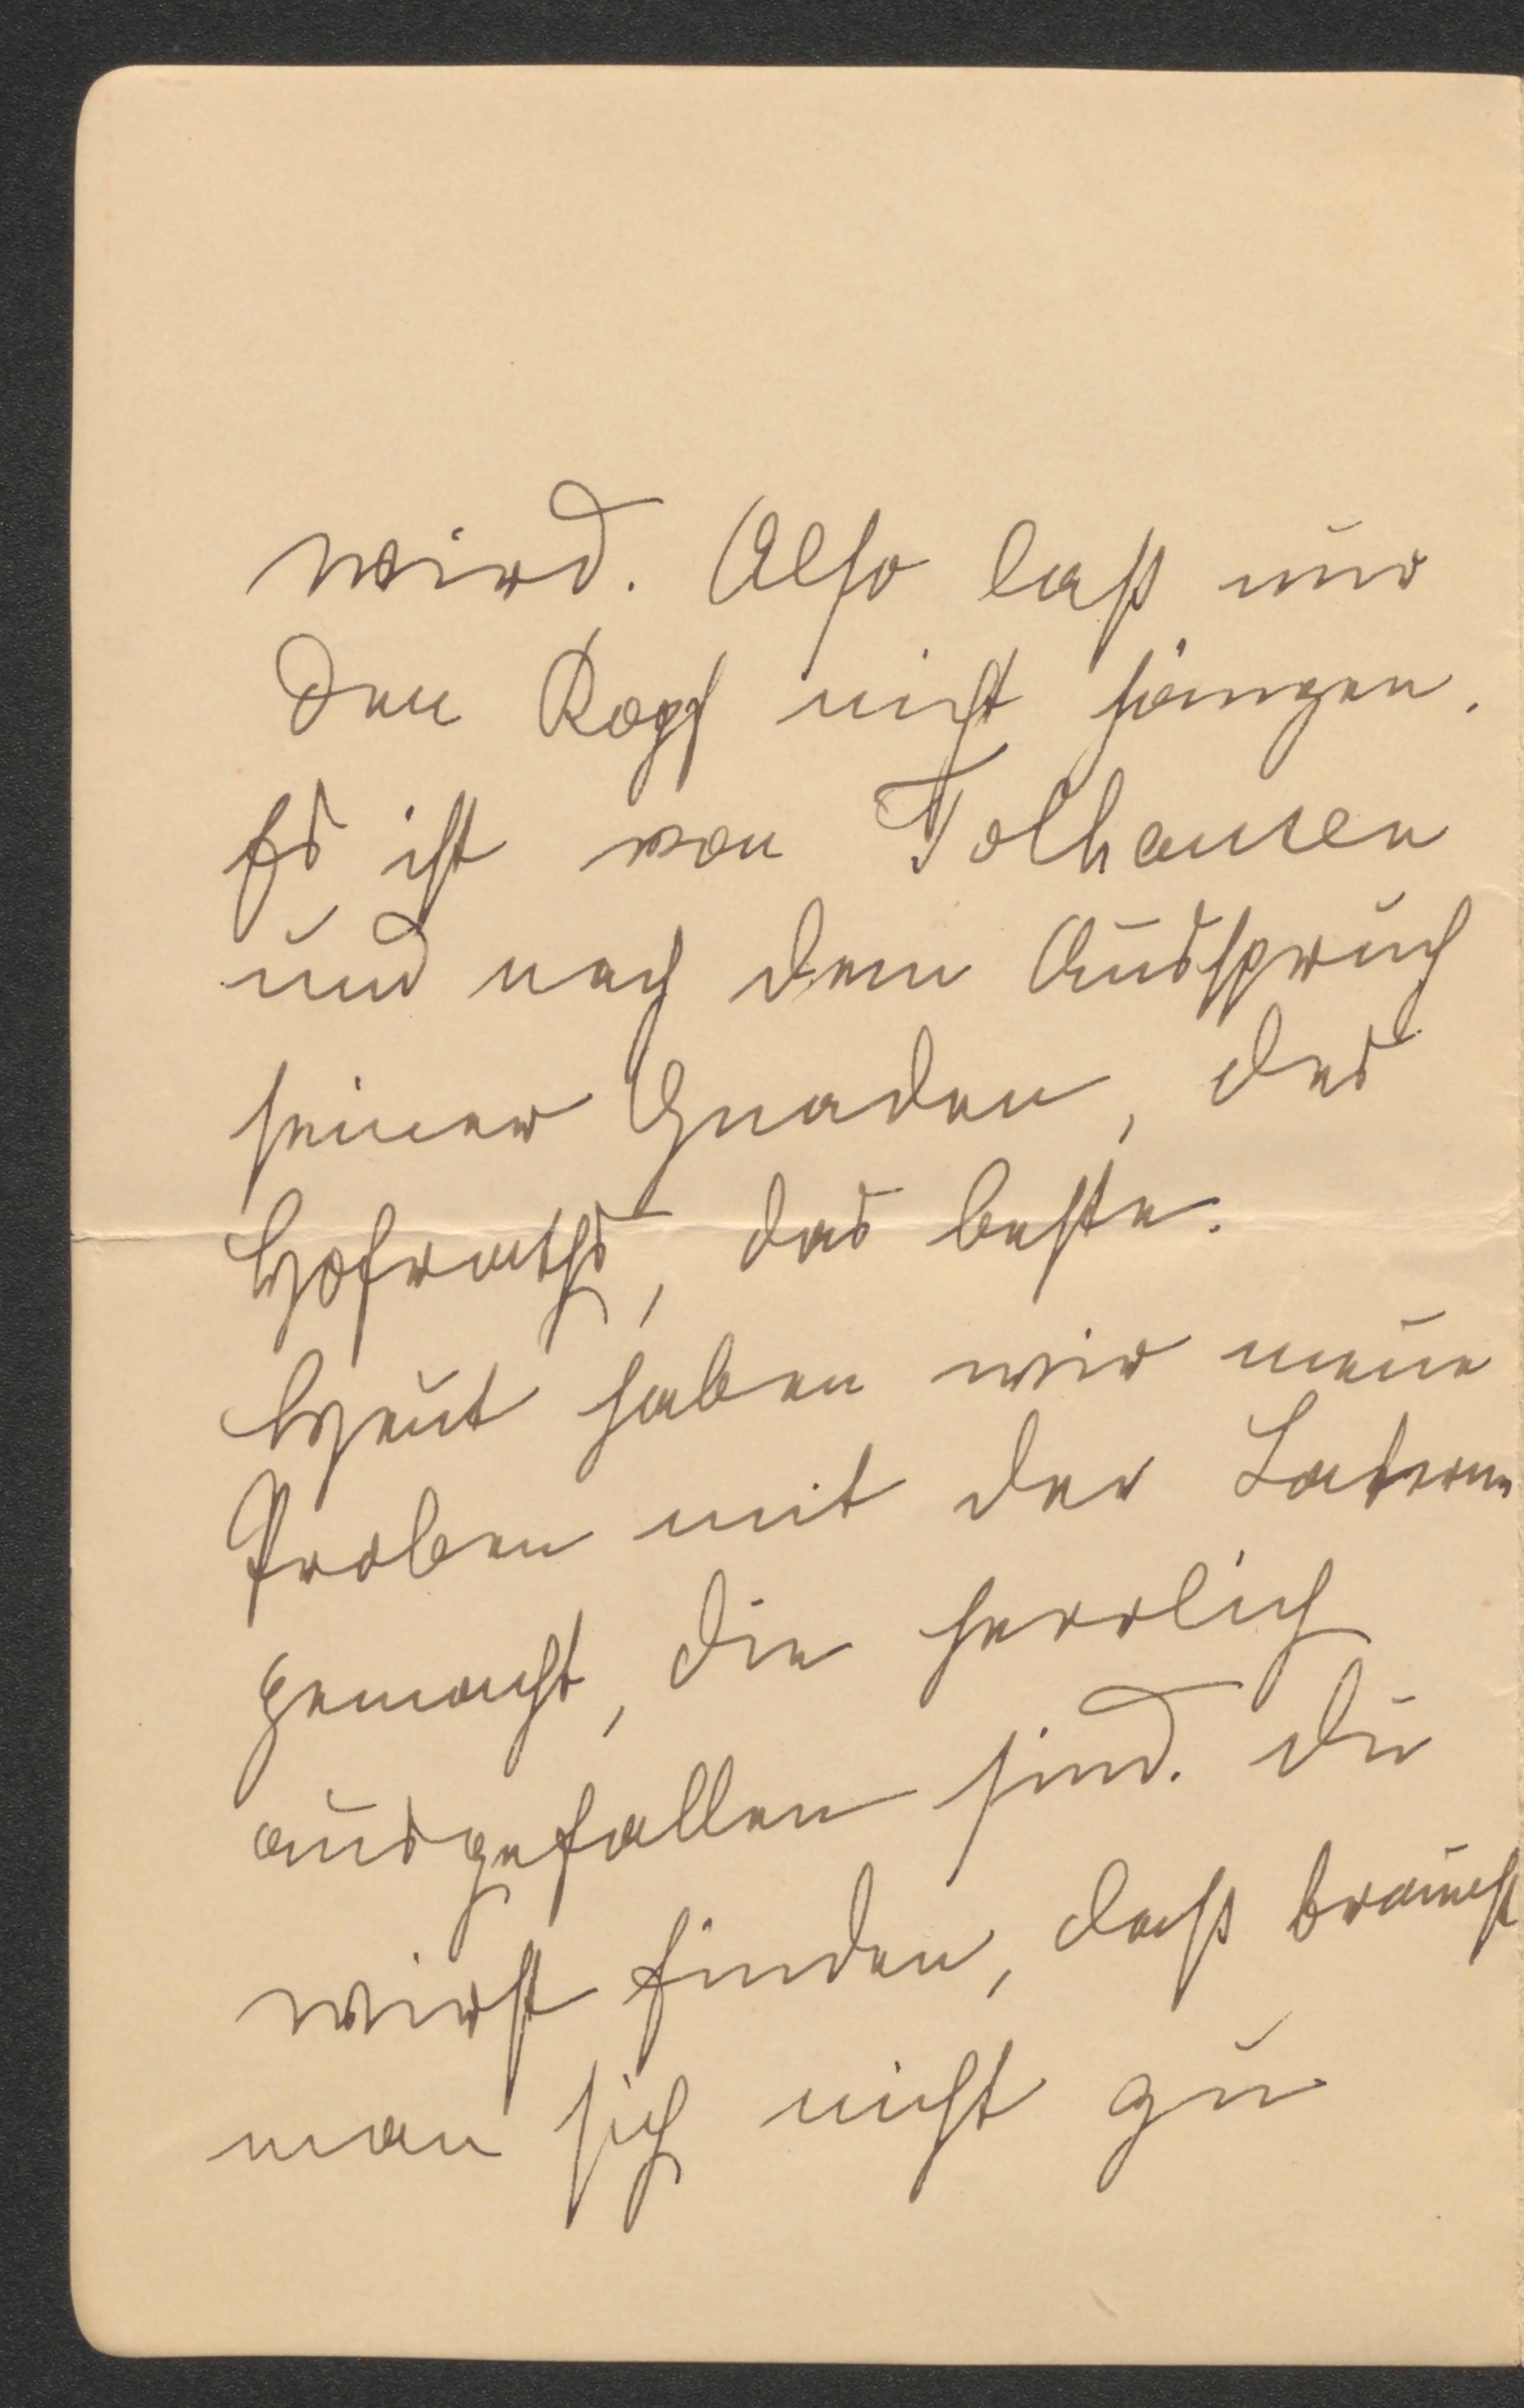 wird. Also laß nur
den Kopf nicht hängen.
Es ist von Tolhausen
und nach dem Ausspruch
seiner Gnaden, des
Hofraths, das beste.
Heut haben wir neue
Proben mit der Laterne
gemacht, die herrlich
ausgefallen sind. Du
wirst finden, daß
man sich nicht zu